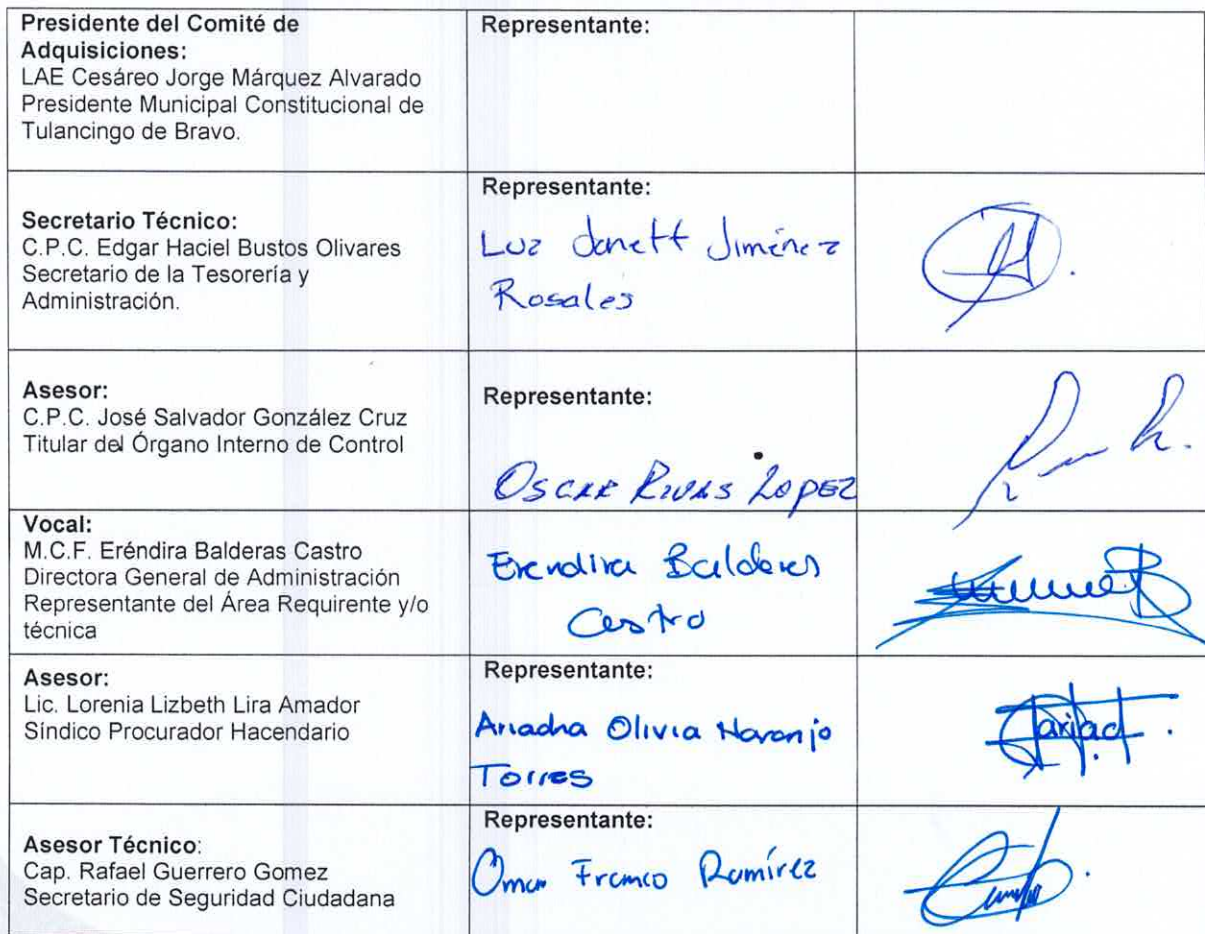 Presidente del Comité de
Adquisiciones:
LAE Cesáreo Jorge Márquez Alvarado
Presidente Municipal Constitucional de
Tulancingo de Bravo.
Representante:
Secretario Técnico:
C.P.C. Edgar Haciel Bustos Olivares
Secretario de la Tesorería y
Administración.
Representante:
Luz Janett Jiménez
Rosales
Asesor:
C.P.C. José Salvador González Cruz
Titular del Órgano Interno de Control
Representante:
OSCAR RIVAS LOPEZ
Vocal:
M.C.F. Eréndira Balderas Castro
Directora General de Administración
Representante del Área Requirente y/o
técnica
Erendira Balderas
Castro
Asesor:
Lic. Lorenia Lizbeth Lira Amador
Síndico Procurador Hacendario
Representante:
Ariadna Olivia Naranjo
Torres
Asesor Técnico:
Cap. Rafael Guerrero Gomez
Secretario de Seguridad Ciudadana
Representante:
Omar Franco Ramírez